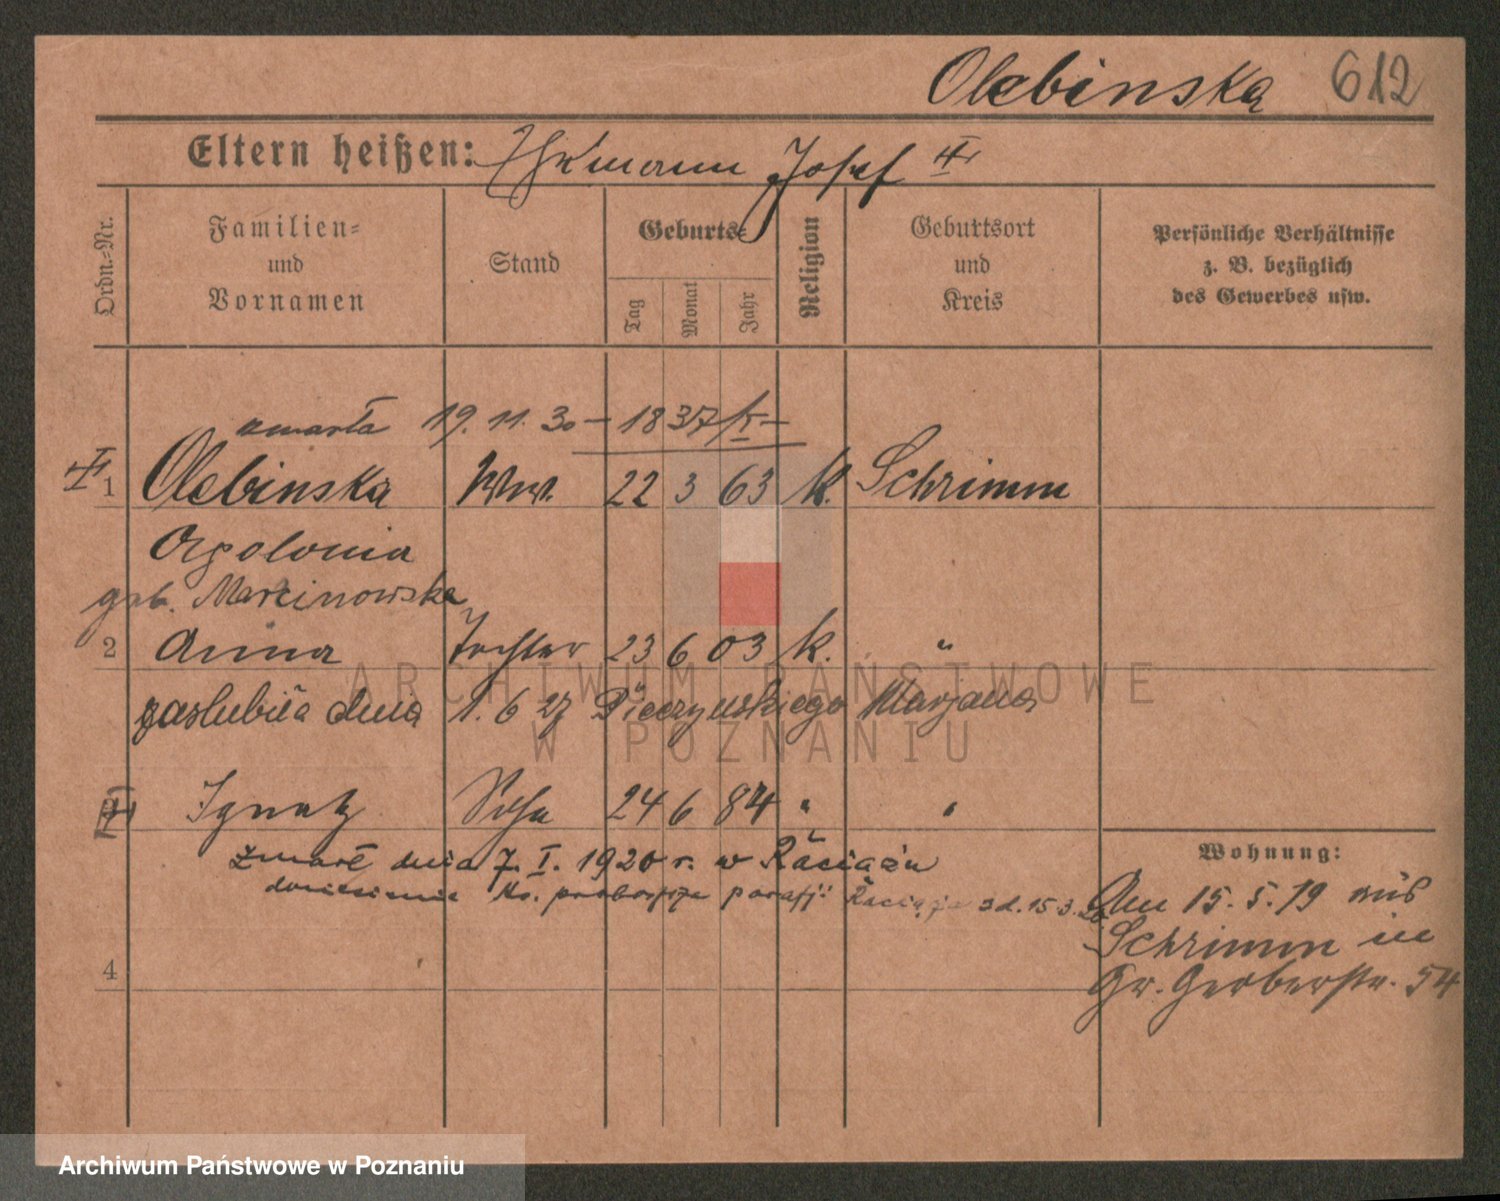 Olebinska 612
Eltern heißen: Ehemann Josef
Ordn.-Nr.
Familien-
und
Vornamen
Stand
Geburts-
Tag
Monat
Jahr
Religion
Geburtsort
und
Kreis
Persönliche Verhältnisse
z. B. bezüglich
des Gewerbes usw.
zmarła 19. 11. 30 – 1837/
1 Olebinska Ww. 22 3 63 k. Schrimm
Apolonia
geb. Marcinowska
2 Anna Tochter 23 6 03 k. "
zaslubiła dnia 1. 6 27 Pieczynskiego Marjana
Ignatz Sohn 24 6 84 " "
zmarł dnia 7. I. 1920 r. w Raciążu
doniesienie Ks. proboszcza parafji Raciąża z d. 15.3.20
4
Wohnung:
Am 15. 5. 19 aus
Schrimm in
Gr. Gerberstr. 54
ARCHIWUM PAŃSTWOWE
W POZNANIU
Archiwum Państwowe w Poznaniu